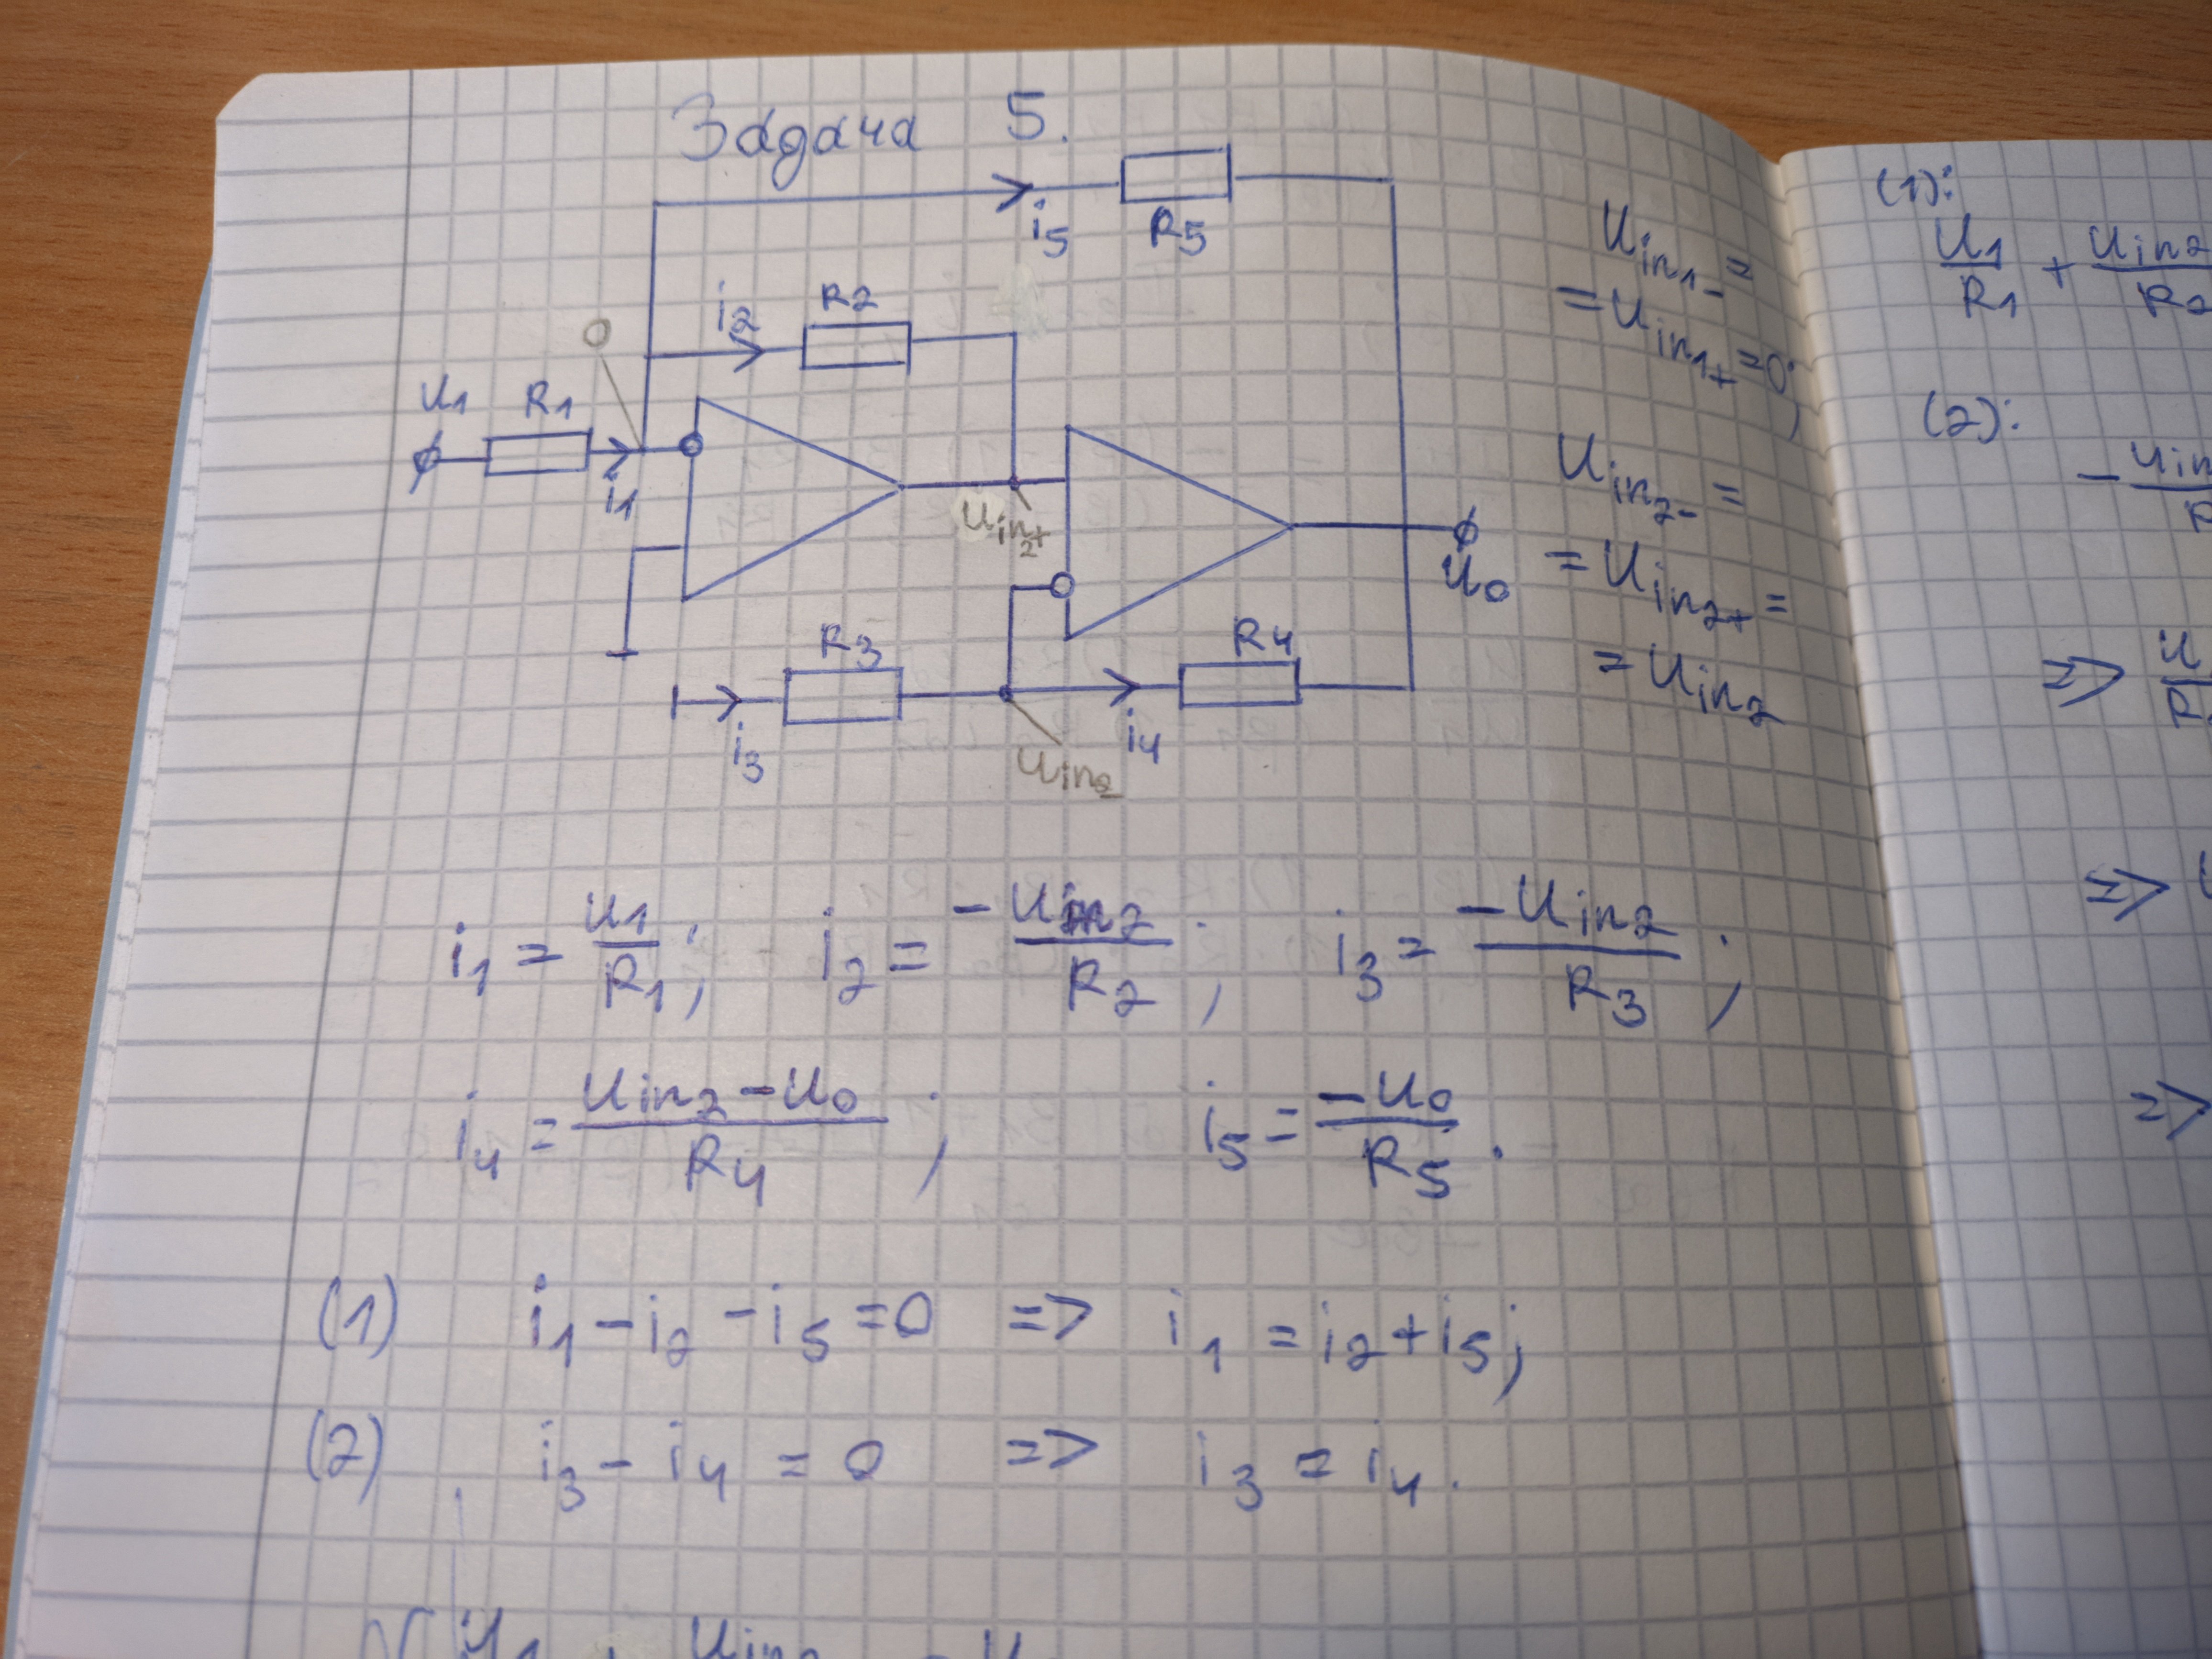 Задача 5.
i5 R5
i2 R2
0
U1 R1
i1
Uin2+
U0
R3 R4
i3 i4
Uin2-
Uin1- =
= Uin1+ = 0;
Uin2- =
= Uin2+ =
= Uin2
i1 = U1/R1; i2 = -Uin2/R2; i3 = -Uin2/R3;
i4 = (Uin2 - U0)/R4; i5 = -U0/R5.
(1) i1 - i2 - i5 = 0 => i1 = i2 + i5;
(2) i3 - i4 = 0 => i3 = i4.
(1):
U1/R1 + Uin2
(2):
=>
=>
=>